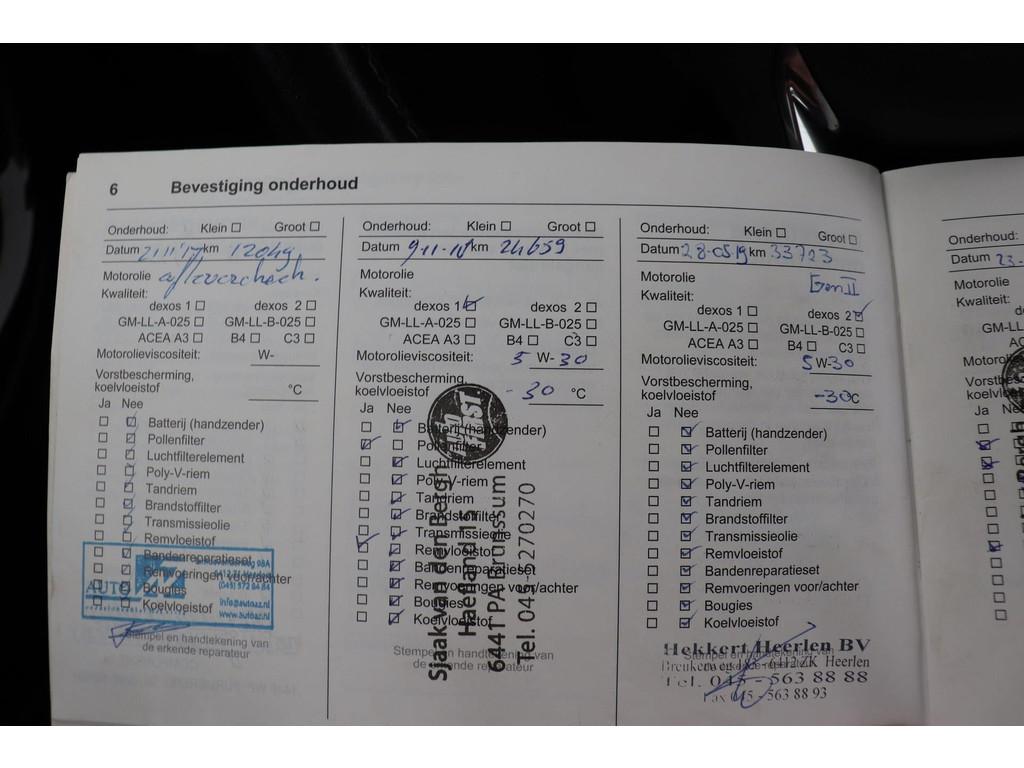 6 Bevestiging onderhoud
Onderhoud: Klein Groot
Datum 21 11 '17 km 12049
Motorolie afleverchech.
Kwaliteit:
dexos 1 dexos 2
GM-LL-A-025 GM-LL-B-025
ACEA A3 B4 C3
Motorolieviscositeit: W-
Vorstbescherming,
koelvloeistof °C
Ja Nee
Batterij (handzender)
Pollenfilter
Luchtfilterelement
Poly-V-riem
Tandriem
Brandstoffilter
Transmissieolie
Remvloeistof
Bandenreparatieset
Remvoeringen voor/achter
Bougies
Koelvloeistof
AUTO
(045) 572 84 84
info@autoaz.nl
www.autoaz.nl
Stempel en handtekening van
de erkende reparateur
Onderhoud: Klein Groot
Datum 9-11-18 km 24659
Motorolie
Kwaliteit:
dexos 1 dexos 2
GM-LL-A-025 GM-LL-B-025
ACEA A3 B4 C3
Motorolieviscositeit: 5 W- 30
Vorstbescherming,
koelvloeistof - 30 °C
Ja Nee
Batterij (handzender)
Pollenfilter
Luchtfilterelement
Poly-V-riem
Tandriem
Brandstoffilter
Transmissieolie
Remvloeistof
Bandenreparatieset
Remvoeringen voor/achter
Bougies
Koelvloeistof
first
Sjaak van den Bergh
Haefland 15
6441 PA Brunssum
Tel. 045-5270270
Stempel en handtekening van
de erkende reparateur
Onderhoud: Klein Groot
Datum 28-05-19 km 33723
Motorolie Gen II
Kwaliteit:
dexos 1 dexos 2
GM-LL-A-025 GM-LL-B-025
ACEA A3 B4 C3
Motorolieviscositeit: 5 W-30
Vorstbescherming,
koelvloeistof -30 C
Ja Nee
Batterij (handzender)
Pollenfilter
Luchtfilterelement
Poly-V-riem
Tandriem
Brandstoffilter
Transmissieolie
Remvloeistof
Bandenreparatieset
Remvoeringen voor/achter
Bougies
Koelvloeistof
Hekkert Heerlen BV
Stempel en handtekening van
6412 ZK Heerlen
de erkende reparateur
Tel. 045 - 563 88 88
Fax 045 - 563 88 93
Onderhoud:
Datum 23-
Motorolie
Kwaliteit:
GM-LL
Ja Nee